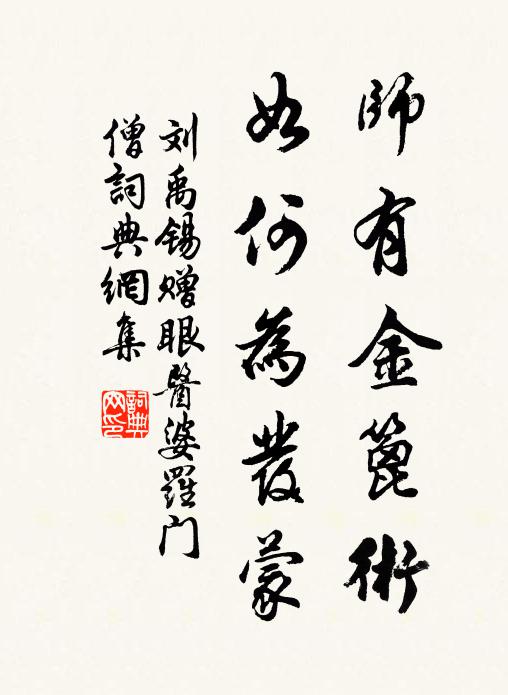 師有金篦術
如何為發蒙
刘禹锡赠眼醫婆羅门
僧詞典網集
詞典網印